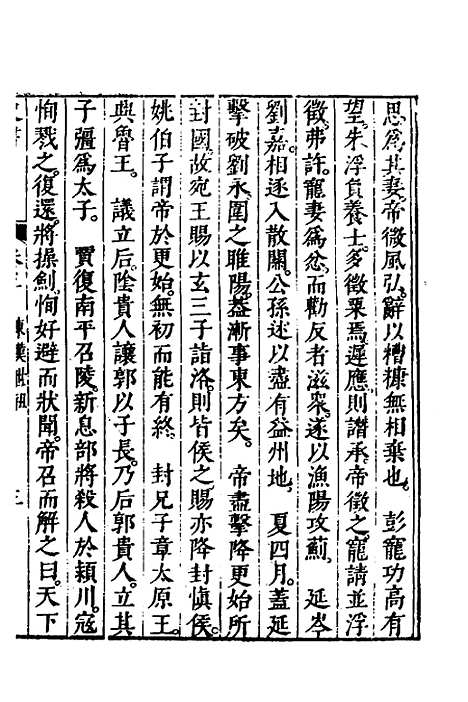 思爲其妻帝微風弘辭以糟糠無相棄也　彭寵功高有
望朱浮負養士多徵粟焉遲應則譖承帝徵之寵請並浮
徵弗許寵妻爲忿而勸反者滋衆遂以漁陽攻薊　延岑
劉嘉相逐入散關公孫述以盡有益州地　夏四月蓋延
擊破劉永圍之睢陽蓋漸事東方矣　帝盡擊降更始所
封國故宛王賜以玄三子詣洛則皆侯之賜亦降封愼侯
姚伯子謂帝於更始無初而能有終　封兄子章太原王
興魯王　議立后陰貴人讓郭以子長乃后郭貴人立其
子彊爲太子　賈復南平召陵新息部將殺人於潁川寇
恂戮之復還將操劍恂好避而狀聞帝召而解之曰天下
東漢世祖
三